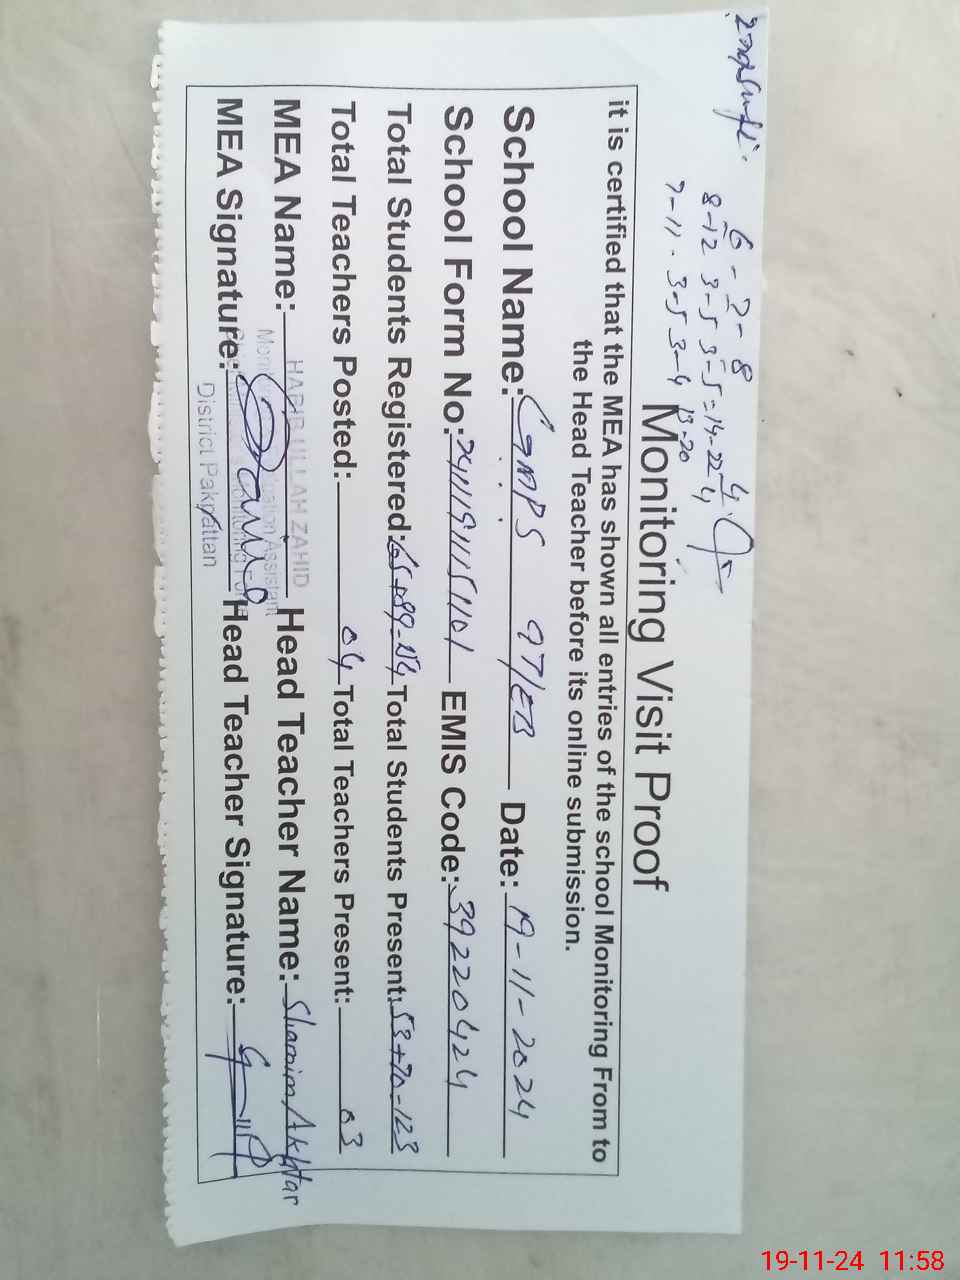 6 - 7 - 8
8-12 3-5 3-5 = 14-22
7-11 . 3-5 3-4 13-20
Monitoring Visit Proof
it is certified that the MEA has shown all entries of the school Monitoring From to
the Head Teacher before its online submission.
School Name: GMPS 97/EB Date: 19-11-2024
School Form No: EMIS Code: 39220424
Total Students Registered: 65+89-154 Total Students Present: 53+70-123
Total Teachers Posted: 04 Total Teachers Present: 03
MEA Name: HABIB ULLAH ZAHID Head Teacher Name: Shamim Akhtar
MEA Signature: Head Teacher Signature:
District Pakpattan
19-11-24 11:58